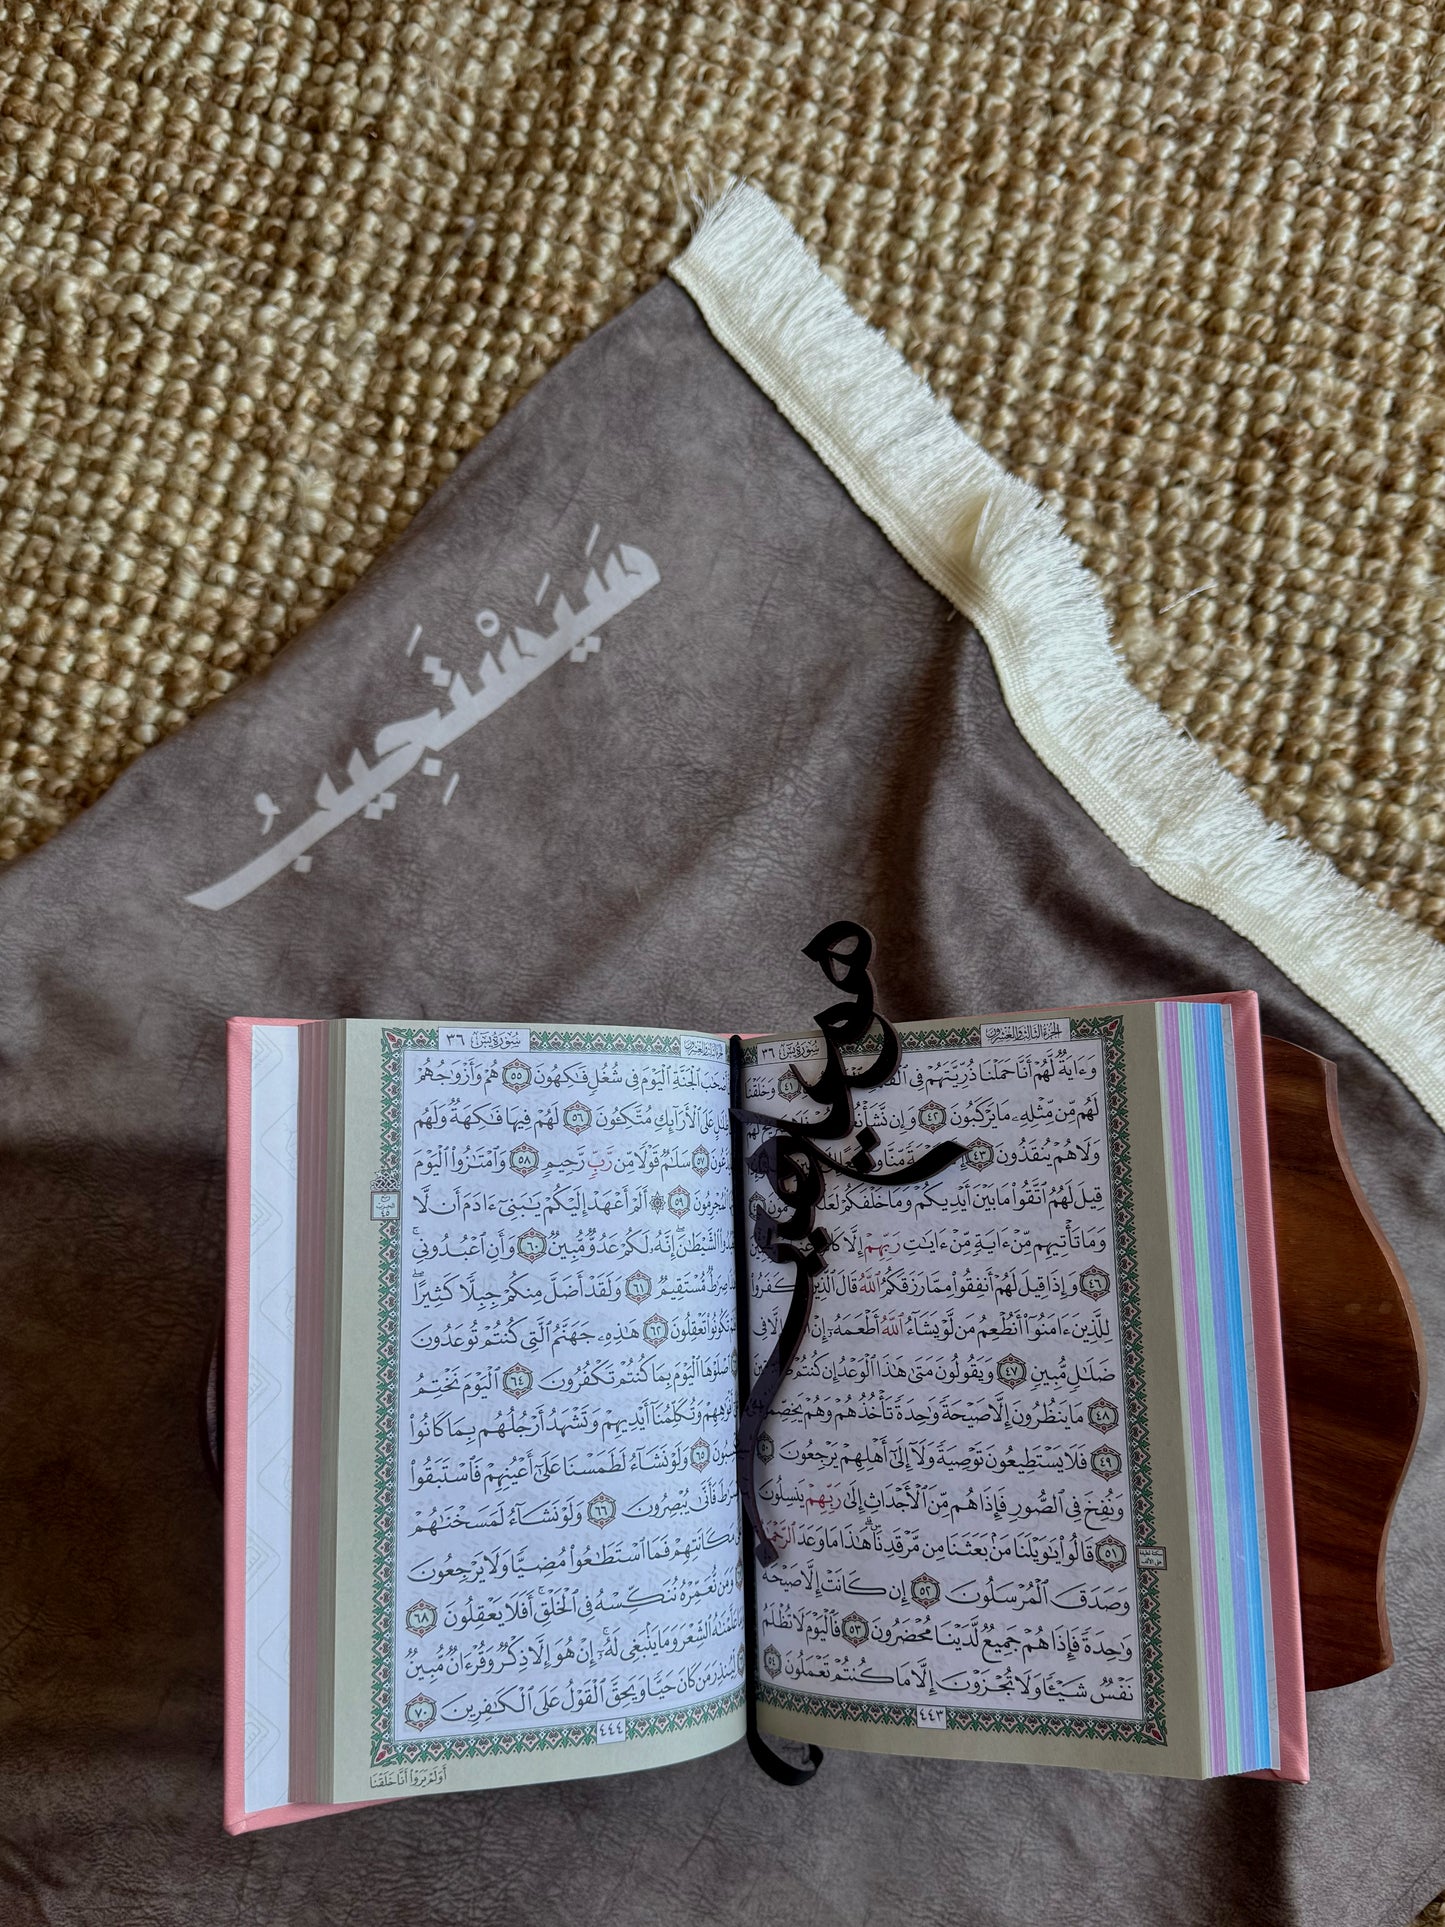 سَيَسْتَجِيبُ
الجزء الثالث والعشرون
سورة يس ٣٦
وَءَايَةٌ لَّهُمْ أَنَّا حَمَلْنَا ذُرِّيَّتَهُمْ فِي ٤١ وَخَلَقْنَا
لَهُم مِّن مِّثْلِهِۦ مَا يَرْكَبُونَ ٤٢ وَإِن نَّشَأْ
وَلَا هُمْ يُنقَذُونَ ٤٣
قِيلَ لَهُمُ ٱتَّقُوا۟ مَا بَيْنَ أَيْدِيكُمْ وَمَا خَلْفَكُمْ
وَمَا تَأْتِيهِم مِّنْ ءَايَةٍ مِّنْ ءَايَـٰتِ رَبِّهِمْ إِلَّا
٤٦ وَإِذَا قِيلَ لَهُمْ أَنفِقُوا۟ مِمَّا رَزَقَكُمُ ٱللَّهُ قَالَ ٱلَّذِينَ كَفَرُوا۟
لِلَّذِينَ ءَامَنُوٓا۟ أَنُطْعِمُ مَن لَّوْ يَشَآءُ ٱللَّهُ أَطْعَمَهُۥٓ إِنْ إِلَّا فِي
ضَلَـٰلٍ مُّبِينٍ ٤٧ وَيَقُولُونَ مَتَىٰ هَـٰذَا ٱلْوَعْدُ إِن كُنتُمْ
٤٨ مَا يَنظُرُونَ إِلَّا صَيْحَةً وَٰحِدَةً تَأْخُذُهُمْ وَهُمْ يَخِصِّمُونَ
٤٩ فَلَا يَسْتَطِيعُونَ تَوْصِيَةً وَلَآ إِلَىٰٓ أَهْلِهِمْ يَرْجِعُونَ ٥٠
وَنُفِخَ فِي ٱلصُّورِ فَإِذَا هُم مِّنَ ٱلْأَجْدَاثِ إِلَىٰ رَبِّهِمْ يَنسِلُونَ
٥١ قَالُوا۟ يَـٰوَيْلَنَا مَنۢ بَعَثَنَا مِن مَّرْقَدِنَا ۜ ۗ هَـٰذَا مَا وَعَدَ ٱلرَّحْمَـٰنُ
وَصَدَقَ ٱلْمُرْسَلُونَ ٥٢ إِن كَانَتْ إِلَّا صَيْحَةً
وَٰحِدَةً فَإِذَا هُمْ جَمِيعٌ لَّدَيْنَا مُحْضَرُونَ ٥٣ فَٱلْيَوْمَ لَا تُظْلَمُ
نَفْسٌ شَيْـًٔا وَلَا تُجْزَوْنَ إِلَّا مَا كُنتُمْ تَعْمَلُونَ ٥٤
٤٤٣
سورة يس ٣٦
أَصْحَـٰبَ ٱلْجَنَّةِ ٱلْيَوْمَ فِي شُغُلٍ فَـٰكِهُونَ ٥٥ هُمْ وَأَزْوَٰجُهُمْ
عَلَى ٱلْأَرَآئِكِ مُتَّكِـُٔونَ ٥٦ لَهُمْ فِيهَا فَـٰكِهَةٌ وَلَهُم
٥٧ سَلَـٰمٌ قَوْلًا مِّن رَّبٍّ رَّحِيمٍ ٥٨ وَٱمْتَـٰزُوا۟ ٱلْيَوْمَ
ٱلْمُجْرِمُونَ ٥٩ ۞ أَلَمْ أَعْهَدْ إِلَيْكُمْ يَـٰبَنِيٓ ءَادَمَ أَن لَّا
ٱلشَّيْطَـٰنَ ۖ إِنَّهُۥ لَكُمْ عَدُوٌّ مُّبِينٌ ٦٠ وَأَنِ ٱعْبُدُونِي ۚ
صِرَٰطٌ مُّسْتَقِيمٌ ٦١ وَلَقَدْ أَضَلَّ مِنكُمْ جِبِلًّا كَثِيرًا ۖ
تَكُونُوا۟ تَعْقِلُونَ ٦٢ هَـٰذِهِۦ جَهَنَّمُ ٱلَّتِي كُنتُمْ تُوعَدُونَ
ٱصْلَوْهَا ٱلْيَوْمَ بِمَا كُنتُمْ تَكْفُرُونَ ٦٤ ٱلْيَوْمَ نَخْتِمُ
أَفْوَٰهِهِمْ وَتُكَلِّمُنَآ أَيْدِيهِمْ وَتَشْهَدُ أَرْجُلُهُم بِمَا كَانُوا۟
٦٥ وَلَوْ نَشَآءُ لَطَمَسْنَا عَلَىٰٓ أَعْيُنِهِمْ فَٱسْتَبَقُوا۟
فَأَنَّىٰ يُبْصِرُونَ ٦٦ وَلَوْ نَشَآءُ لَمَسَخْنَـٰهُمْ
مَكَانَتِهِمْ فَمَا ٱسْتَطَـٰعُوا۟ مُضِيًّا وَلَا يَرْجِعُونَ
وَمَن نُّعَمِّرْهُ نُنَكِّسْهُ فِي ٱلْخَلْقِ ۚ أَفَلَا يَعْقِلُونَ ٦٨
عَلَّمْنَـٰهُ ٱلشِّعْرَ وَمَا يَنۢبَغِي لَهُۥٓ ۚ إِنْ هُوَ إِلَّا ذِكْرٌ وَقُرْءَانٌ مُّبِينٌ
لِّيُنذِرَ مَن كَانَ حَيًّا وَيَحِقَّ ٱلْقَوْلُ عَلَى ٱلْكَـٰفِرِينَ ٧٠
٤٤٤
أَوَلَمْ يَرَوْا۟ أَنَّا خَلَقْنَا